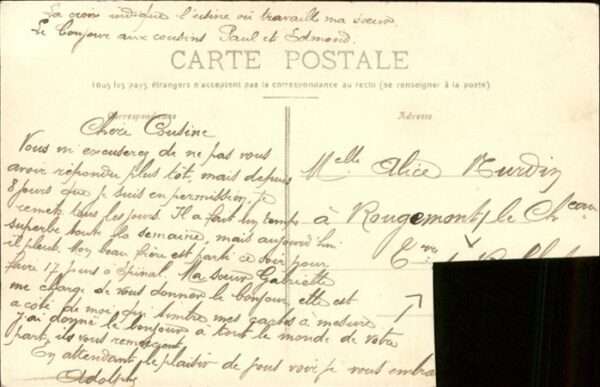 La croix indique l'usine où travaille ma sœur
Le bonjour aux cousins Paul et Edmond.
CARTE POSTALE
Tous les pays étrangers n'acceptent pas la correspondance au recto (se renseigner à la poste)
Correspondance
Adresse
Chère Cousine
Vous m'excuserez de ne pas vous
avoir répondu plus tôt, mais depuis
8 jours que je suis en permission, je
remets tous les jours. Il a fait un temps
superbe toute la semaine, mais aujourd'hui
il pleut. Mon beau frère est parti ce soir pour
faire 17 jours à Épinal. Ma sœur Gabrielle
me charge de vous donner le bonjour, elle est
a côté de moi, qui mes à mesure
j'ai donné le bonjour à tout le monde de votre
part, ils vous remercient,
En attendant le plaisir de vous voir je vous
Adolphe
Melle Alice
à Rougemont le Cheau